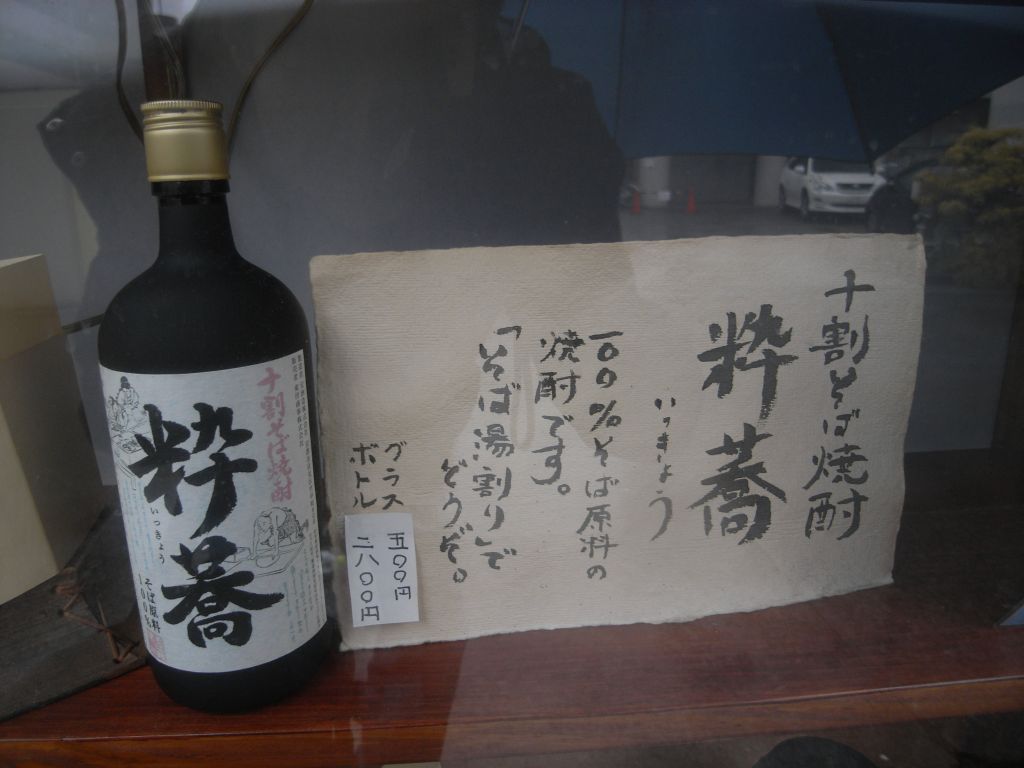 十割そば焼酎
粋蕎
いっきょう
一〇〇%そば原料の
焼酎です。
「そば湯割り」で
どうぞ。
グラス 五〇〇円
ボトル 二八〇〇円
十割そば焼酎
粋蕎
いっきょう
そば原料
100%